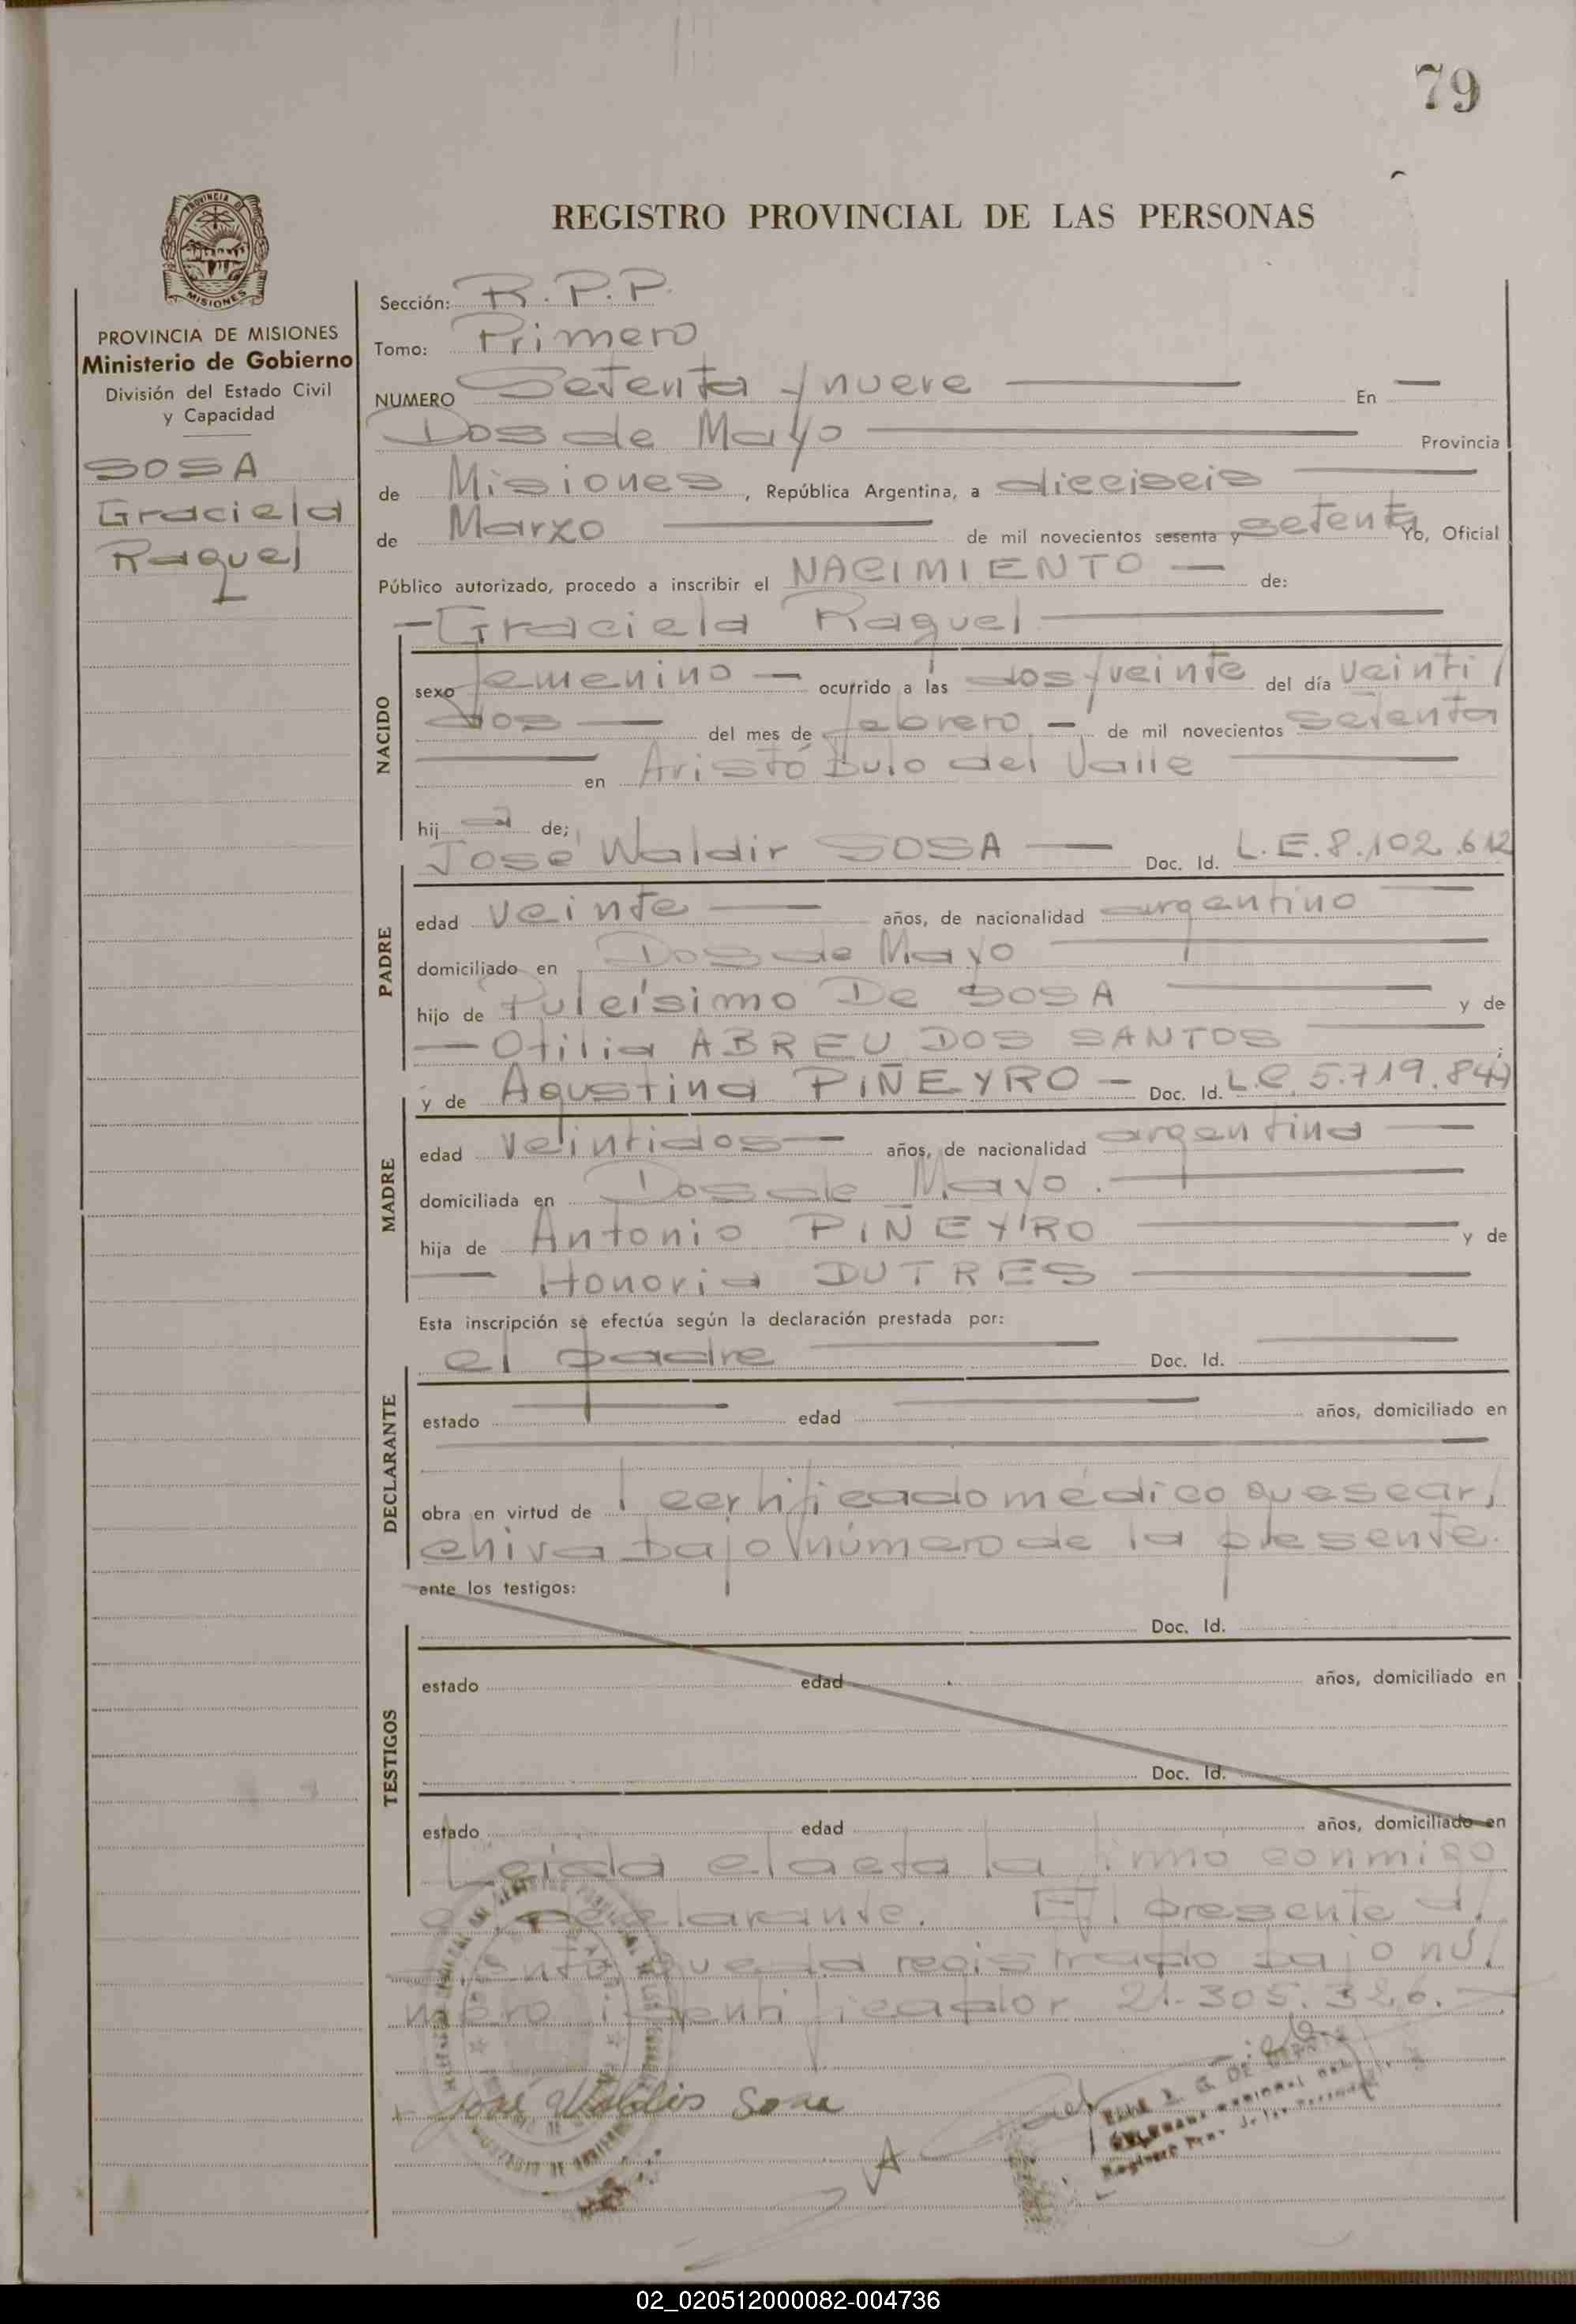 79
REGISTRO PROVINCIAL DE LAS PERSONAS
PROVINCIA DE
MISIONES
PROVINCIA DE MISIONES
Ministerio de Gobierno
División del Estado Civil
y Capacidad
SOSA
Graciela
Raquel
Sección: R.P.P.
Tomo: Primero
NUMERO Setenta y nueve En
Dos de Mayo Provincia
de Misiones, República Argentina, a dieciseis
de Marzo de mil novecientos sesenta y setenta Yo, Oficial
Público autorizado, procedo a inscribir el NACIMIENTO de:
Graciela Raquel
NACIDO
sexo femenino ocurrido a las dos y veinte del día veinti/
dos del mes de febrero de mil novecientos setenta
en Aristóbulo del Valle
hija de;
José Waldir SOSA Doc. Id. L.E.8.102.612
PADRE
edad veinte años, de nacionalidad argentino
domiciliado en Dos de Mayo
hijo de Pulcísimo De SOSA y de
Otilia ABREU DOS SANTOS
y de Agustina PIÑEYRO Doc. Id. L.C. 5.719.844
MADRE
edad veintidos años, de nacionalidad argentina
domiciliada en Dos de Mayo.
hija de Antonio PIÑEYRO y de
Honoria DUTRES
Esta inscripción se efectúa según la declaración prestada por:
el padre Doc. Id.
DECLARANTE
estado edad años, domiciliado en
obra en virtud de certificado médico que se ar/
chiva bajo número de la presente.
ante los testigos:
Doc. Id.
TESTIGOS
estado edad años, domiciliado en
Doc. Id.
estado edad años, domiciliado en
Leida el acta la firmo conmigo
el declarante. El presente a/
siento queda registrado bajo nú/
mero identificador 21.305.326.
José Waldir Sosa
02_020512000082-004736